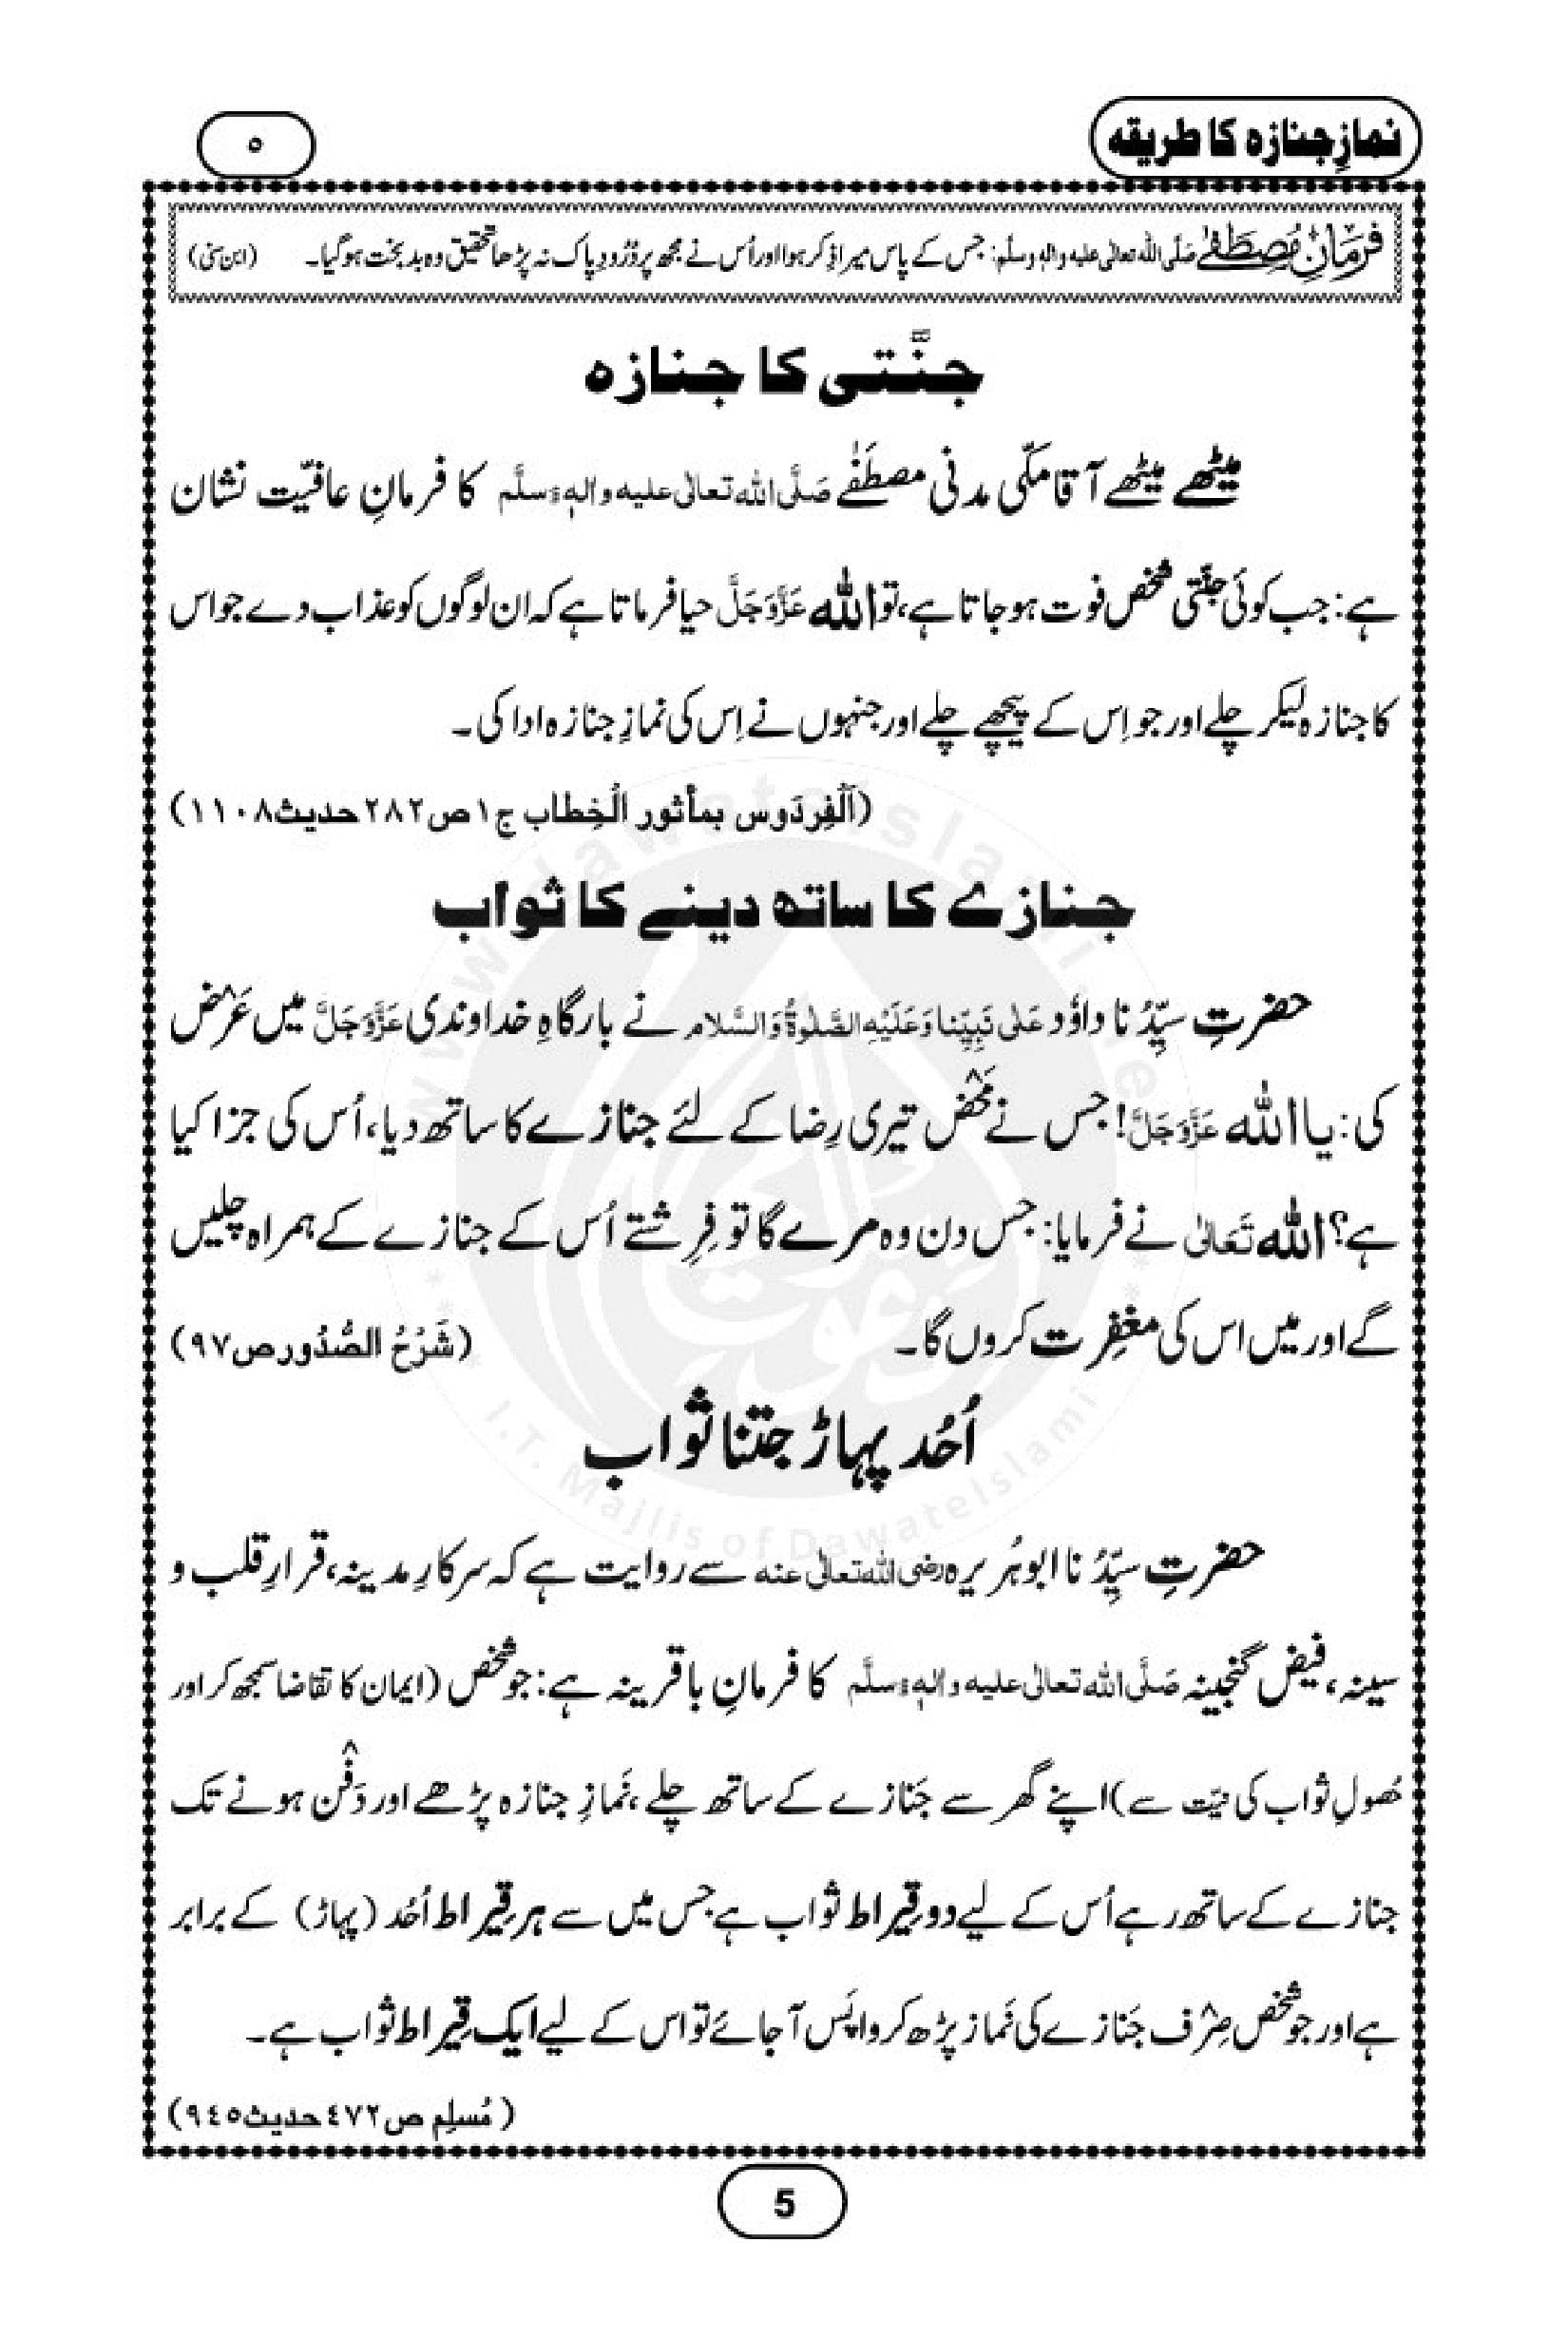 نمازِ جنازہ کا طریقہ
٥
فرمانِ مُصطَفٰے صَلَّی اللہ تعالٰی علیہ واٰلہٖ وسلَّم: جس کے پاس میرا ذِکر ہوا اور اُس نے مجھ پر دُرُودِ پاک نہ پڑھا تحقیق وہ بد بخت ہو گیا۔ (ابن سنی)
جنَّتی کا جنازہ
میٹھے میٹھے آقا مکّی مدنی مصطَفٰے صَلَّی اللہ تعالٰی علیہ واٰلہٖ وسلَّم کا فرمانِ عافیّت نشان
ہے: جب کوئی جنّتی شخص فوت ہو جاتا ہے، تو اللہ عَزَّوَجَلَّ حیا فرماتا ہے کہ ان لوگوں کو عذاب دے جو اس
کا جنازہ لیکر چلے اور جو اِس کے پیچھے چلے اور جنہوں نے اِس کی نمازِ جنازہ ادا کی۔
(اَلْفِردَوس بمأثور الْخِطاب ج١ص٢٨٢حدیث١١٠٨)
جنازے کا ساتھ دینے کا ثواب
حضرتِ سیِّدُنا داوٗد عَلٰی نَبِیِّنا وَعَلَیْہِ الصَّلٰوۃُ وَالسَّلام نے بارگاہِ خداوندی عَزَّوَجَلَّ میں عَرْض
کی: یا اللہ عَزَّوَجَلَّ! جس نے مَحْض تیری رِضا کے لئے جنازے کا ساتھ دیا، اُس کی جزا کیا
ہے؟ اللہ تَعَالٰی نے فرمایا: جس دن وہ مرے گا تو فِرِشتے اُس کے جنازے کے ہمراہ چلیں
گے اور میں اس کی مغفِرت کروں گا۔ (شَرْحُ الصُّدُور ص٩٧)
اُحُد پہاڑ جتنا ثواب
حضرتِ سیِّدُنا ابو ہُریرہ رضی اللہ تعالٰی عنہ سے روایت ہے کہ سرکارِ مدینہ، قرارِ قلب و
سینہ، فیض گنجینہ صَلَّی اللہ تعالٰی علیہ واٰلہٖ وسلَّم کا فرمانِ باقرینہ ہے: جو شخص (ایمان کا تقاضا سمجھ کر اور
حُصولِ ثواب کی نیّت سے) اپنے گھر سے جَنازے کے ساتھ چلے، نَمازِ جنازہ پڑھے اور دَفْن ہونے تک
جنازے کے ساتھ رہے اُس کے لیے دو قِیراط ثواب ہے جس میں سے ہر قِیراط اُحُد (پہاڑ) کے برابر
ہے اور جو شخص صِرْف جَنازے کی نَماز پڑھ کر واپَس آجائے تو اس کے لیے ایک قِیراط ثواب ہے۔
(مُسلِم ص٤٧٢حدیث٩٤٥)
5
www.dawateislami.net
I.T. Majlis of DawateIslami